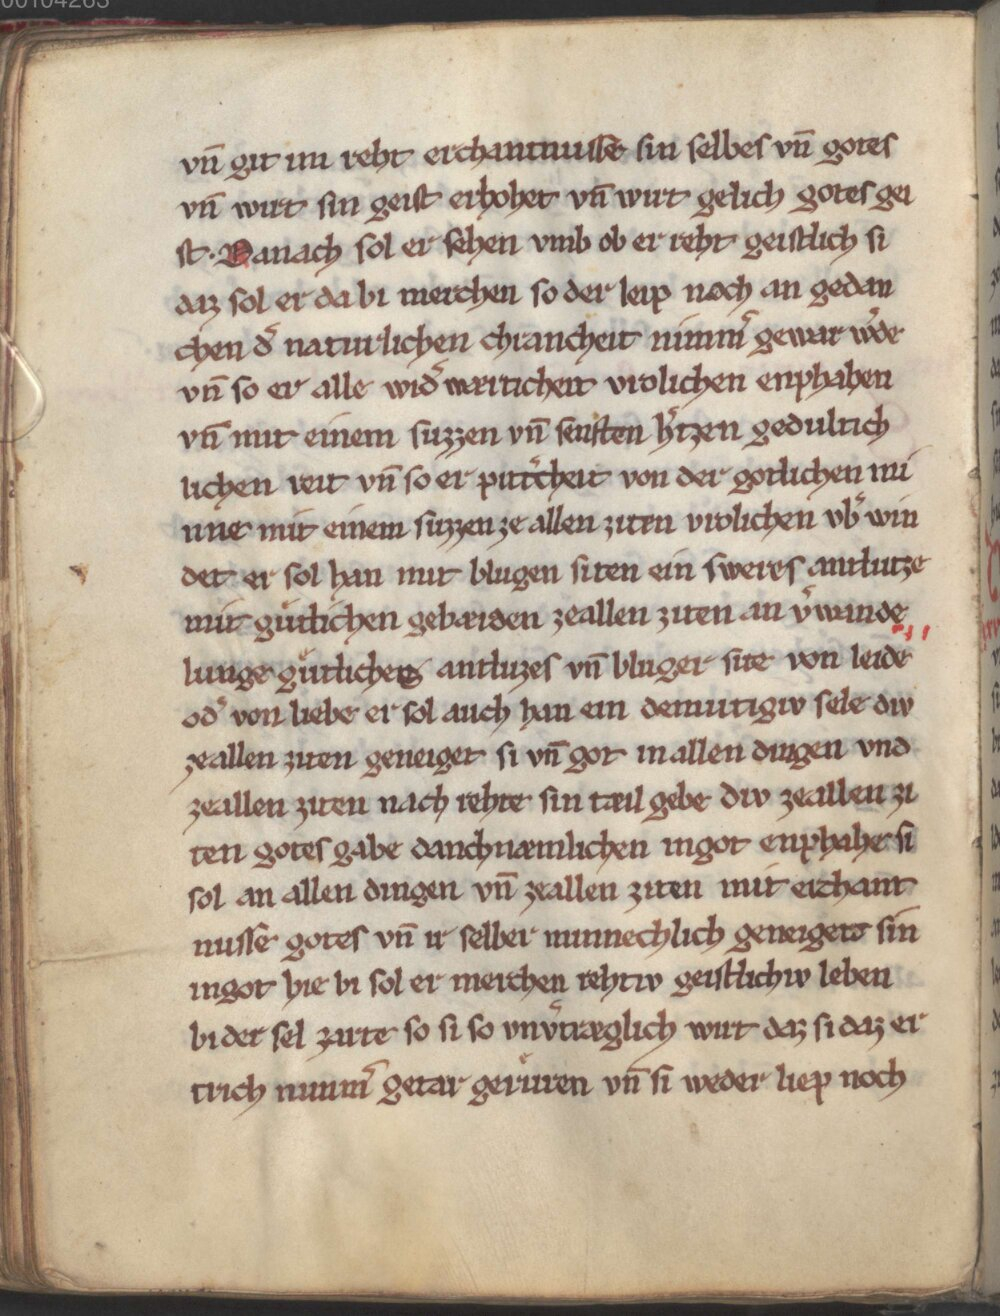 vn̄ git im reht erchantnusse sin selbes vn̄ gotes
vn̄ wirt sin geist erhohet vn̄ wirt gelich gotes gei
st. Danach sol er sehen vmb ob er reht geistlich si
daz sol er da bi merchen so der leip noch an gedan
chen d͛ naturlichen chrancheit nimm͛ gewar w͛de
vn̄ so er alle wid͛wærticheit vrolichen enphahen
vn̄ mit einem suzzen vn̄ senften h͛tzen gedultich
lichen reit vn̄ so er von der gotlichen mi
nne mit einem suzzen ze allen ziten vrolichen vb͛ win
det er sol han mit blugen siten ein sweres antlutze
mit gůtlichen gebærden zeallen ziten an v͛wande
lunge gůtliches antluzes vn̄ bluger site von leide
od͛ von liebe er sol auch han ein demutigiv sele div
zeallen ziten geneiget si vn̄ got in allen dingen vnd
zeallen ziten nach rehte sin tæil gebe div zeallen zi
ten gotes gabe danchnæmlichen ingot enphahe si
sol an allen dingen vn̄ zeallen ziten mit erchant
nusse gotes vn̄ ir selber minnechlich geneiget sin
ingot hie bi sol er merchen rehtiv geistlichiv leben
bi der sel zarte so si so vnv͛træglich wirt daz si daz er
trich nimm͛ getar gerůren vn̄ si weder liep noch